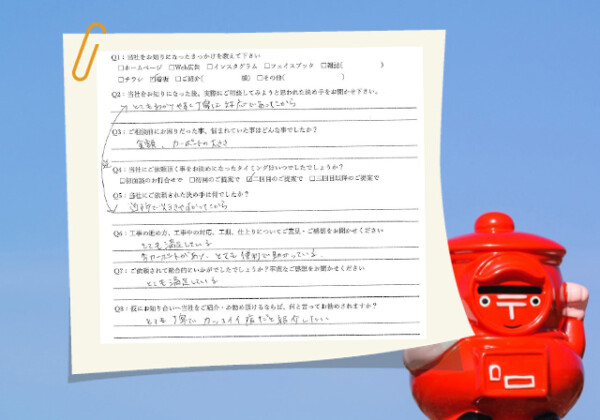 Q1：当社をお知りになったきっかけを教えて下さい
□ホームページ □Web広告 □インスタグラム □フェイスブック □雑誌( )
□チラシ ☑看板 □ご紹介( 様) □その他( )
Q2：当社をお知りになった後、実際にご相談してみようと思われた決め手をお聞かせ下さい。
とてもわかりやすく丁寧な対応であったから
Q3：ご相談前にお困りだった事、悩まれていた事はどんな事でしたか？
金額、カーポートの大きさ
Q4：当社にご依頼頂く事をお決めになったタイミングはいつでしたでしょうか？
□初面談のお打合せで □初回のご提案で ☑二回目のご提案で □三回目以降のご提案で
Q5：当社にご依頼された決め手は何でしたか？
Q6：工事の進め方、工事中の対応、工期、仕上りについてご意見・ご感想をお聞かせください
とても満足している
カーポートがあり、とても便利で助かっている。
Q7：ご依頼されて総合的にいかがでしたでしょうか？率直なご感想をお聞かせください
とても満足している
Q8：仮にお知り合いへ当社をご紹介・お勧め頂けるならば、何と言ってお勧めされますか？
とても丁寧で カッコイイ 店だと紹介したい